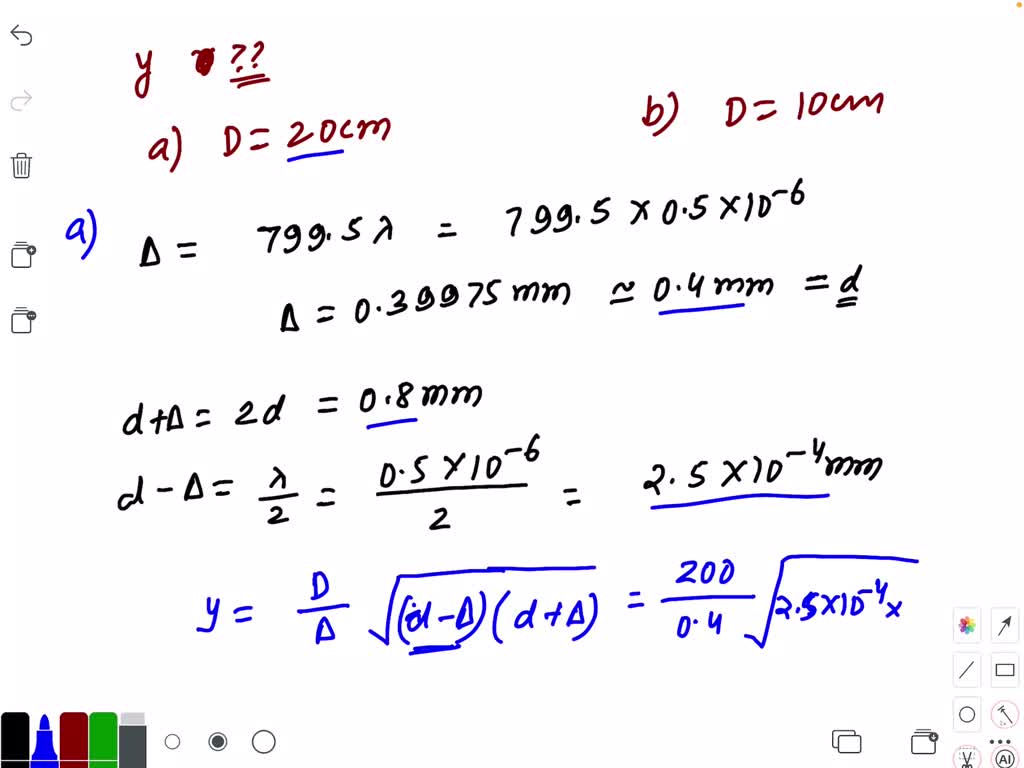 y ??
a) D = 20cm
b) D = 10cm
a) Δ = 799.5 λ = 799.5 × 0.5 × 10⁻⁶
Δ = 0.39975 mm ≃ 0.4 mm = d
d+Δ = 2d = 0.8 mm
d - Δ = λ/2 = 0.5 × 10⁻⁶/2 = 2.5 × 10⁻⁴ mm
y = D/Δ √(d-Δ)(d+Δ) = 200/0.4 √2.5×10⁻⁴ ×
AI